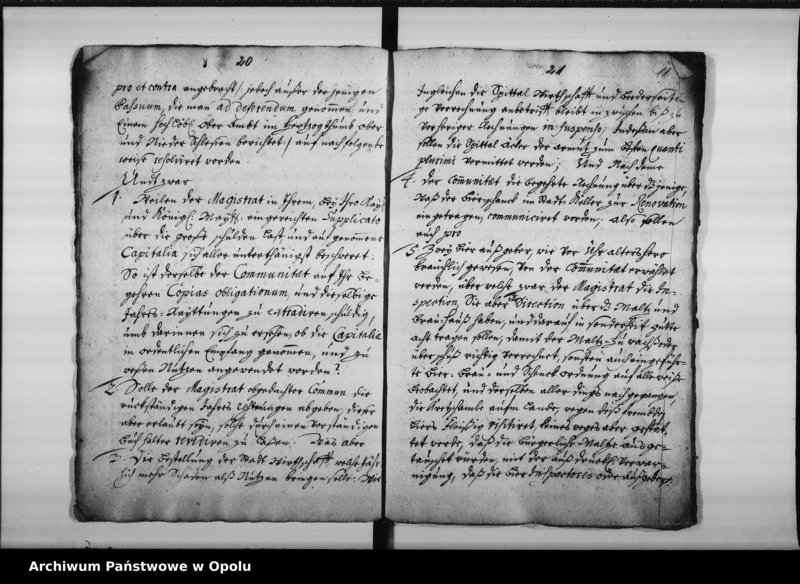 20
pro et contra angebracht, jedoch außer der jenigen
Passuum, die man ad referendum genommen, und
Einem Hochlöbl. Ober Ambt im Hertzogthumb Ober
und Nieder Schlesien berichtet, auf nachfolgente
weise resolviret worden.
Undt zwar
1. Weilen der Magistrat in Ihrem, bey Ihro Kays.
und Königl. Maytt. eingereichten Supplicato
über die große schulden Last, und auf genommene
Capitalia sich aller unterthänigst beschweret.
So ist derselbe der Communität auf Ihr Be-
gehren Copias obligationum, und die selbige
Jahrs-Quittungen zu extradiren schuldig,
umb darinnen sich zu ersehen, ob die Capitalia
in ordentlichen Empfang genommen, und zu
weßen Nutzen angewendet worden?
2. Solle der Magistrat obgedachter Commun die
rückständigen Jahrs Rechnungen abgeben, dieser
aber erlaubt seyn, solche durch einen Verständigen
Buchhalter revidiren zu laßen. Was aber
3. Die Bestellung der Stadt Wirthschafft, welche
sich mehr Schaden alß Nutzen bringen solle. Wie
21
11
Ingleichen die Spittal Wirthschafft und
Verrechnung anbetrifft, bleibt in zwischen biß zu
Vorheriger Rechnungen in suspenso, Indeßen aber
sollen die Spittal äcker der armuth zum Besten quanti
plurimi vermittet werden; Und Nachdeme
4. Der Communität die begehrte Rechnung über diejenige,
Waß der Bierschanck im Stadt Keller zur Renovation
eingetragen, communiciret worden; also sollen
auch pro
5. Zwey Bier außgeber, wie vor Uhr alters hero
bräuchlich gewesen, von der Communität erwählet
werden, über welche zwar der Magistrat die In-
spection, Sie aber die Direction über das Maltz und
Bräuhauß haben, und darauf in sonderheit gutte
acht tragen sollen, damit der Maltz-Zuwachß oder
über schuß richtig verrechnet, sonsten auch eingeführ-
te Bier-Bräu- und Schenck ordnung auf alle weise
beobachtet, und derselben aller dings nachgegangen,
die Kretschambe aufm Lande, wegen deß frembden
Biers fleißig visitiret, keines weges aber gestat-
tet werde, daß die bürgerliche Maltze außge-
tauschet würden, mit der außdrücklichen Verwar-
nigung, daß die Bier Inspectores oder Außgeber
Archiwum Państwowe w Opolu